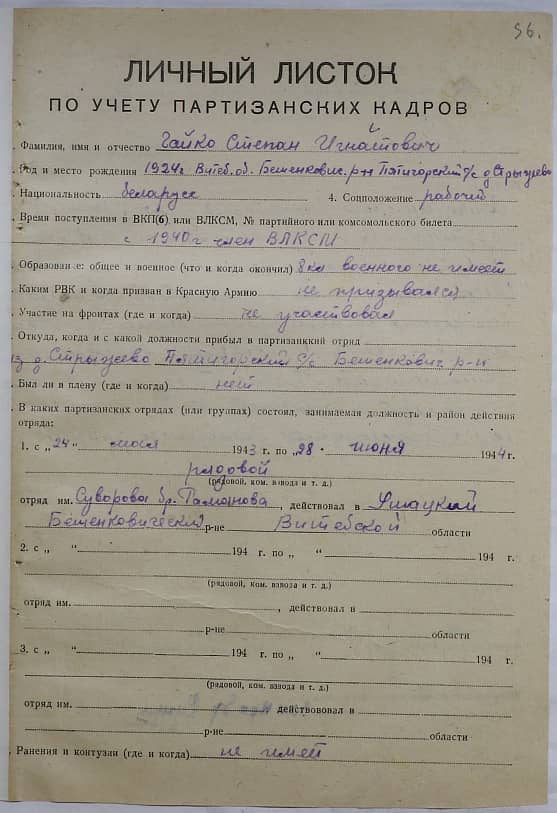 56.
ЛИЧНЫЙ ЛИСТОК
ПО УЧЕТУ ПАРТИЗАНСКИХ КАДРОВ
. Фамилия, имя и отчество Гайко Степан Игнатович
. Род и место рождения 1924г Витеб. об. Бешенкович. р-н Пятигорский с/с д. Стрыжево
. Национальность беларуск 4. Соцположение рабочий
. Время поступления в ВКП(б) или ВЛКСМ, № партийного или комсомольского билета
с 1940г член ВЛКСМ
. Образование: общее и военное (что и когда окончил) 8 кл военного не имеет
. Каким РВК и когда призван в Красную Армию не призывался
. Участие на фронтах (где и когда) не участвовал
. Откуда, когда и с какой должности прибыл в партизанккий отряд
из д. Стрыжево Пятигорский с/с Бешенкович р-н
. Был ли в плену (где и когда) нет
. В каких партизанских отрядах (или группах) состоял, занимаемая должность и район действия
отряда:
1. с „24" мая 1943 г. по „28 " июня 1944 г.
рядовой
(рядовой, ком. взвода и т. д.)
отряд им. Суворова бр. Романова, действовал в Ушацкий
Бешенковический р-не Витебской области
2. с „ " 194 г. по „ " 194 г.
(рядовой, ком. взвода и т. д.)
отряд им. , действовал в
р-не области
3. с „ " 194 г. по „ " 194 г.
(рядовой, ком. взвода и т. д.)
отряд им. действововал в
р-не области
. Ранения и контузии (где и когда) не имеет